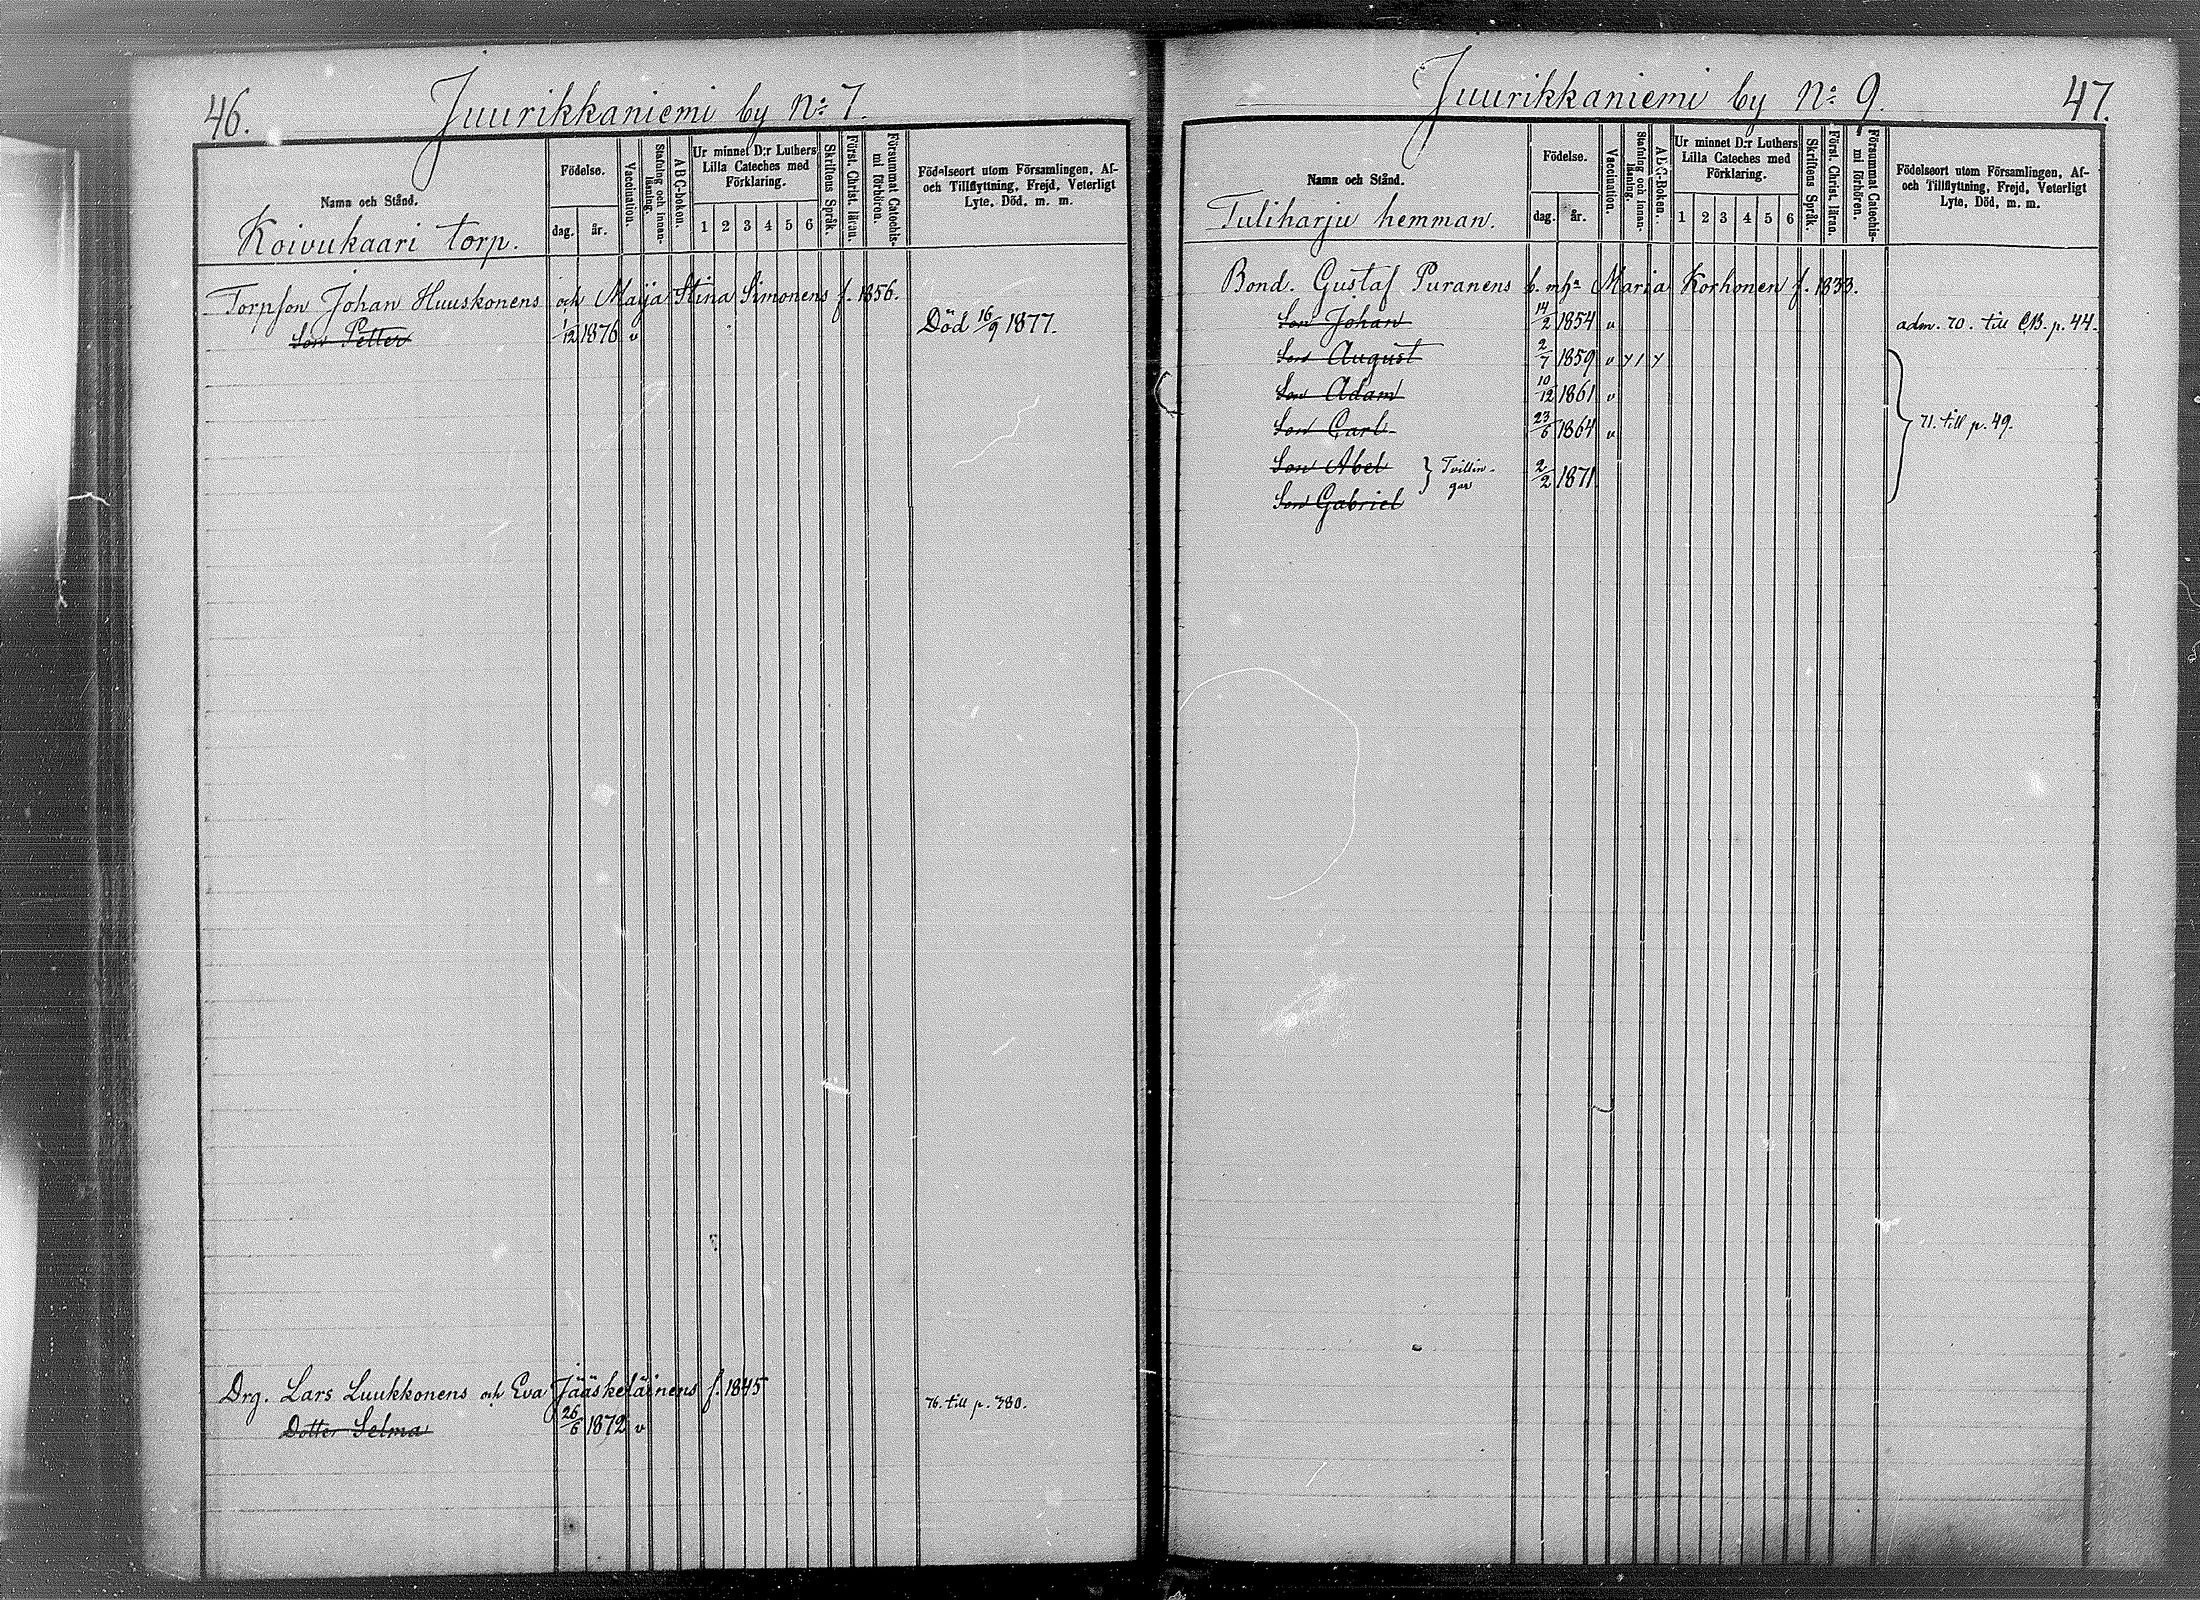 46.
Juurikkaniemi by No: 7.
Namn och Stånd.
Koivukaari torp.
Födelse.
dag. år.
Vaccination.
Stafning och innan-läsning.
ABC-boken.
Ur minnet D:r Luthers
Lilla Cateches med
Förklaring.
1 2 3 4 5 6
Skriftens Språk.
Först. Christ. läran.
Försummat Catechis-
mi förhören.
Födelseort utom Församlingen, Af-
och Tillflyttning, Frejd, Veterligt
Lyte, Död, m. m.
Torpson Johan Huuskonens och Maija Stina Simonens f. 1856.
Son Petter 1/12 1876 v Död 16/9 1877.
Drg. Lars Luukkonens och Eva Jääskeläinens f. 1845
Dotter Selma 26/6 1872 v 76. till p. 380.
Juurikkaniemi by No: 9.
47.
Namn och Stånd.
Tuliharju hemman.
Födelse.
dag. år.
Vaccination.
Stafning och innan-läsning.
ABC-Boken.
Ur minnet D:r Luthers
Lilla Cateches med
Förklaring.
1 2 3 4 5 6
Skriftens Språk.
Först. Christ. lära.
Försummat Catechis-
mi förhören.
Födelseort utom Församlingen, Af-
och Tillflyttning, Frejd, Veterligt
Lyte, Död, m. m.
Bond. Gustaf Puranens Maria Korhonen f. 1833.
Son Johan 14/2 1854 v adm. 70. till CB. p. 44.
Son August 2/7 1859 v
Son Adam 10/12 1861 v
Son Carl 23/6 1864 v 71. till p. 49.
Son Abel } Tvillin-
gar 2/2 1871.
Son Gabriel